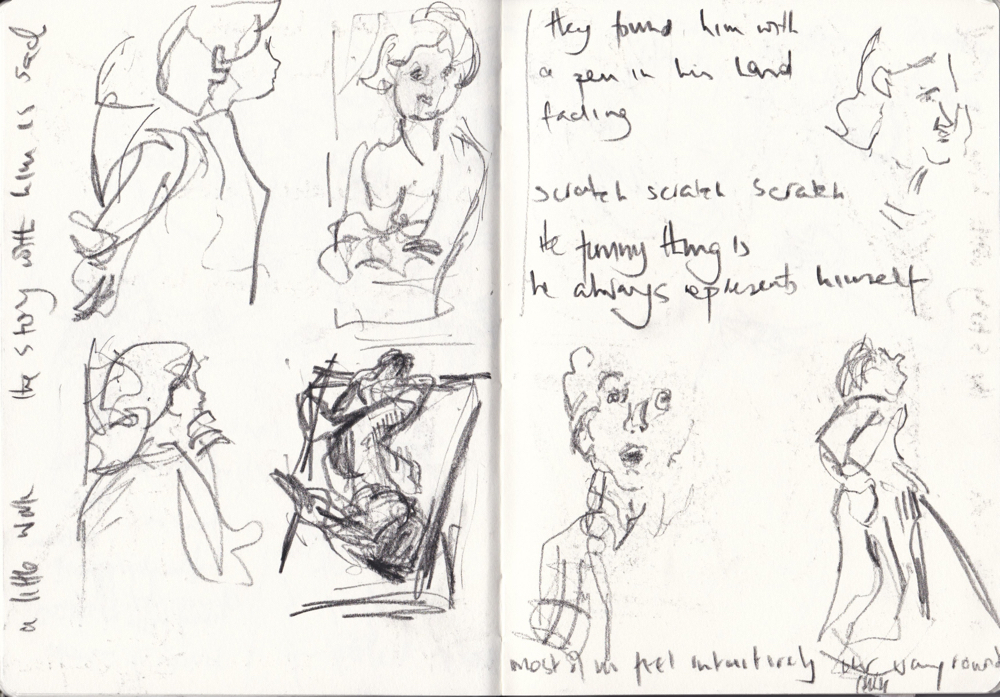 a little walk the story with him is sad
they found him with
a pen in his hand
fading
scratch scratch scratch
the funny thing is
he always represents himself
most of us feel intuitively our way round